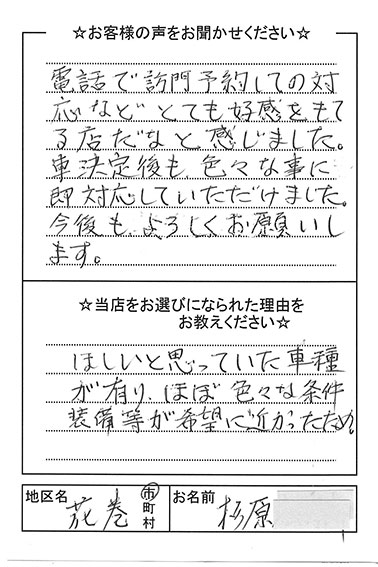 ☆お客様の声をお聞かせください☆
電話で訪問予約しての対
応などとても好感をもて
る店だなと感じました。
車決定後も、色々な事に
即対応していただけました。
今後も、よろしくお願いし
ます。
☆当店をお選びになられた理由を
お教えください☆
ほしいと思っていた車種
が有り、ほぼ色々な条件
装備等が希望に近かったため。
地区名 花巻 市町村 お名前 杉原